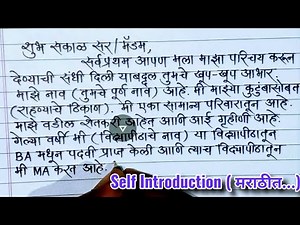 शुभ सकाळ सर/मॅडम,
सर्वप्रथम आपण मला माझा परिचय करून
देण्याची संधी दिली याबद्दल तुमचे खूप-खूप आभार.
माझे नाव (तुमचे पूर्ण नाव) आहे. मी माझ्या कुटुंबासोबत
(राहण्याचे ठिकाण). मी एका सामान्य परिवारातून आहे.
माझे वडील शेतकरी आहेत आणि आई गृहीणी आहे.
गेल्या वर्षी मी (विद्यापीठाचे नाव) या विद्यापीठातून
BA मधून पदवी प्राप्त केली आणि त्याच विद्यापीठातून
मी MA करत आहे.
Self Introduction ( मराठीत...)